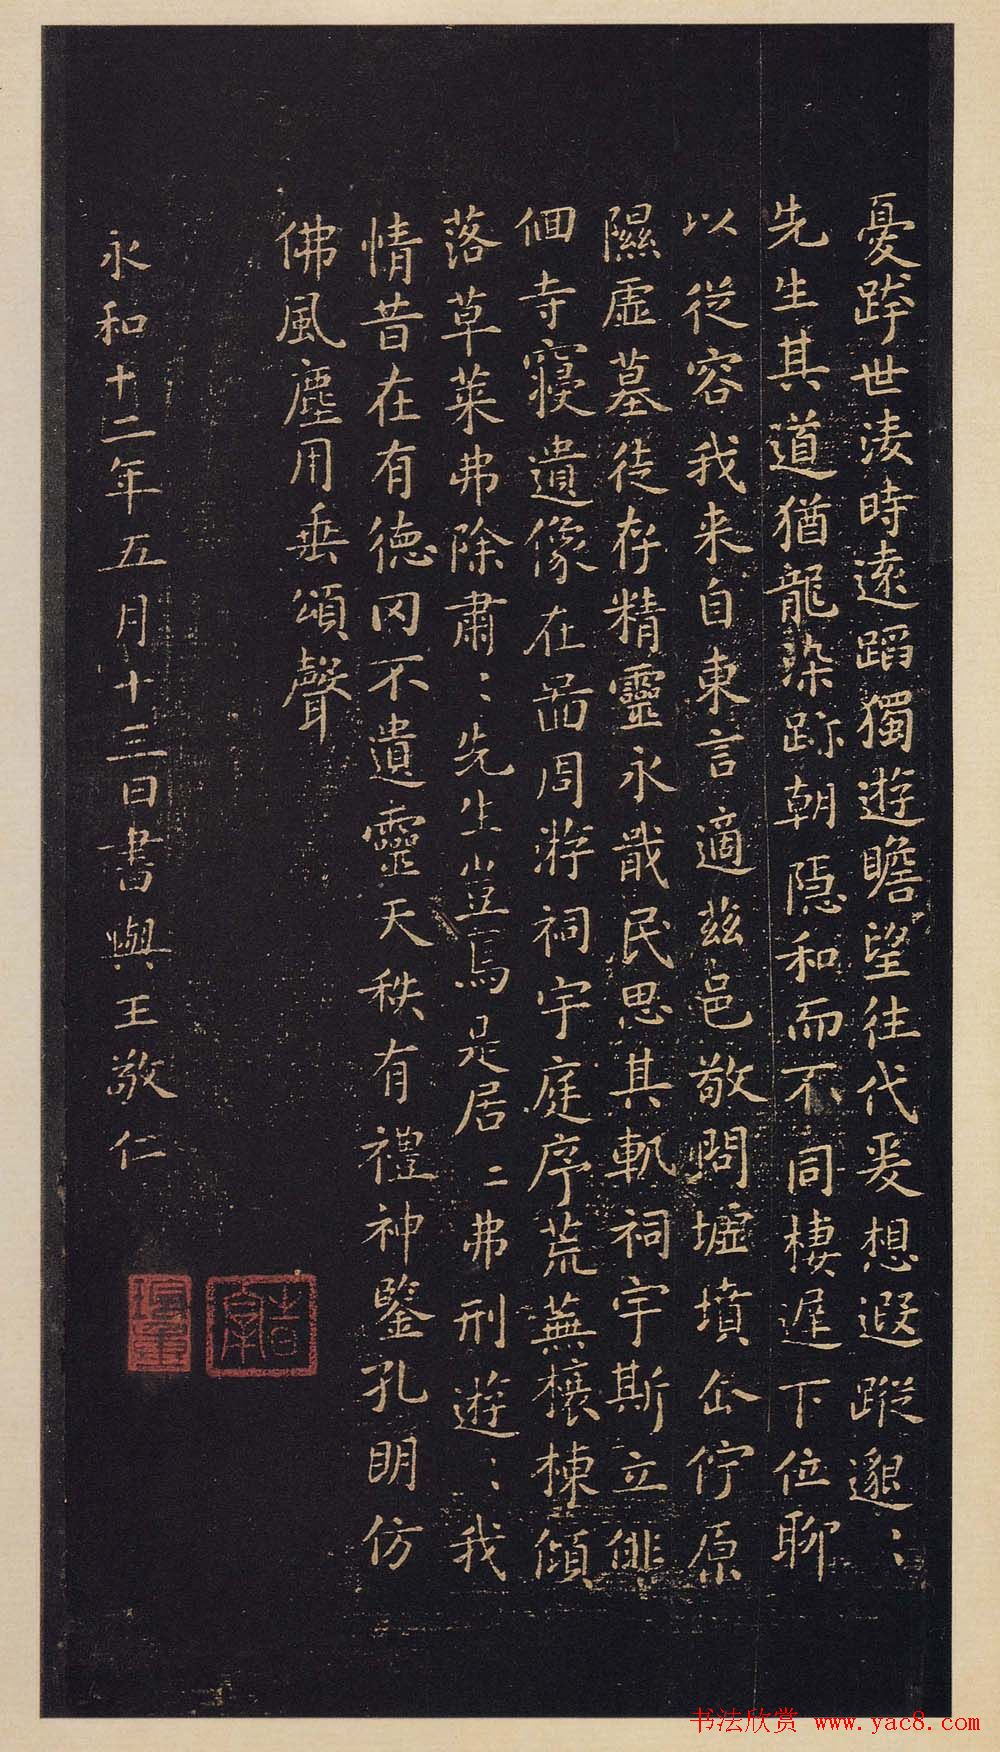 憂跨世淩時遠蹈獨遊瞻望往代爰想遐蹤邈〻
先生其道猶龍染跡朝隱和而不同棲遲下位聊
以從容我来自東言適茲邑敬問墟墳企佇原
隰虛墓徒存精靈永戢民思其軌祠宇斯立俳
佪寺寑遺像在啚周游祠宇庭序荒蕪榱棟傾
落草萊弗除肅〻先生豈焉是居〻弗刑遊〻我
情昔在有徳罔不遺靈天秩有禮神鑒孔明仿
佛風塵用垂頌聲
永和十二年五月十三日書與王敬仁
书法欣赏 www.yac8.com